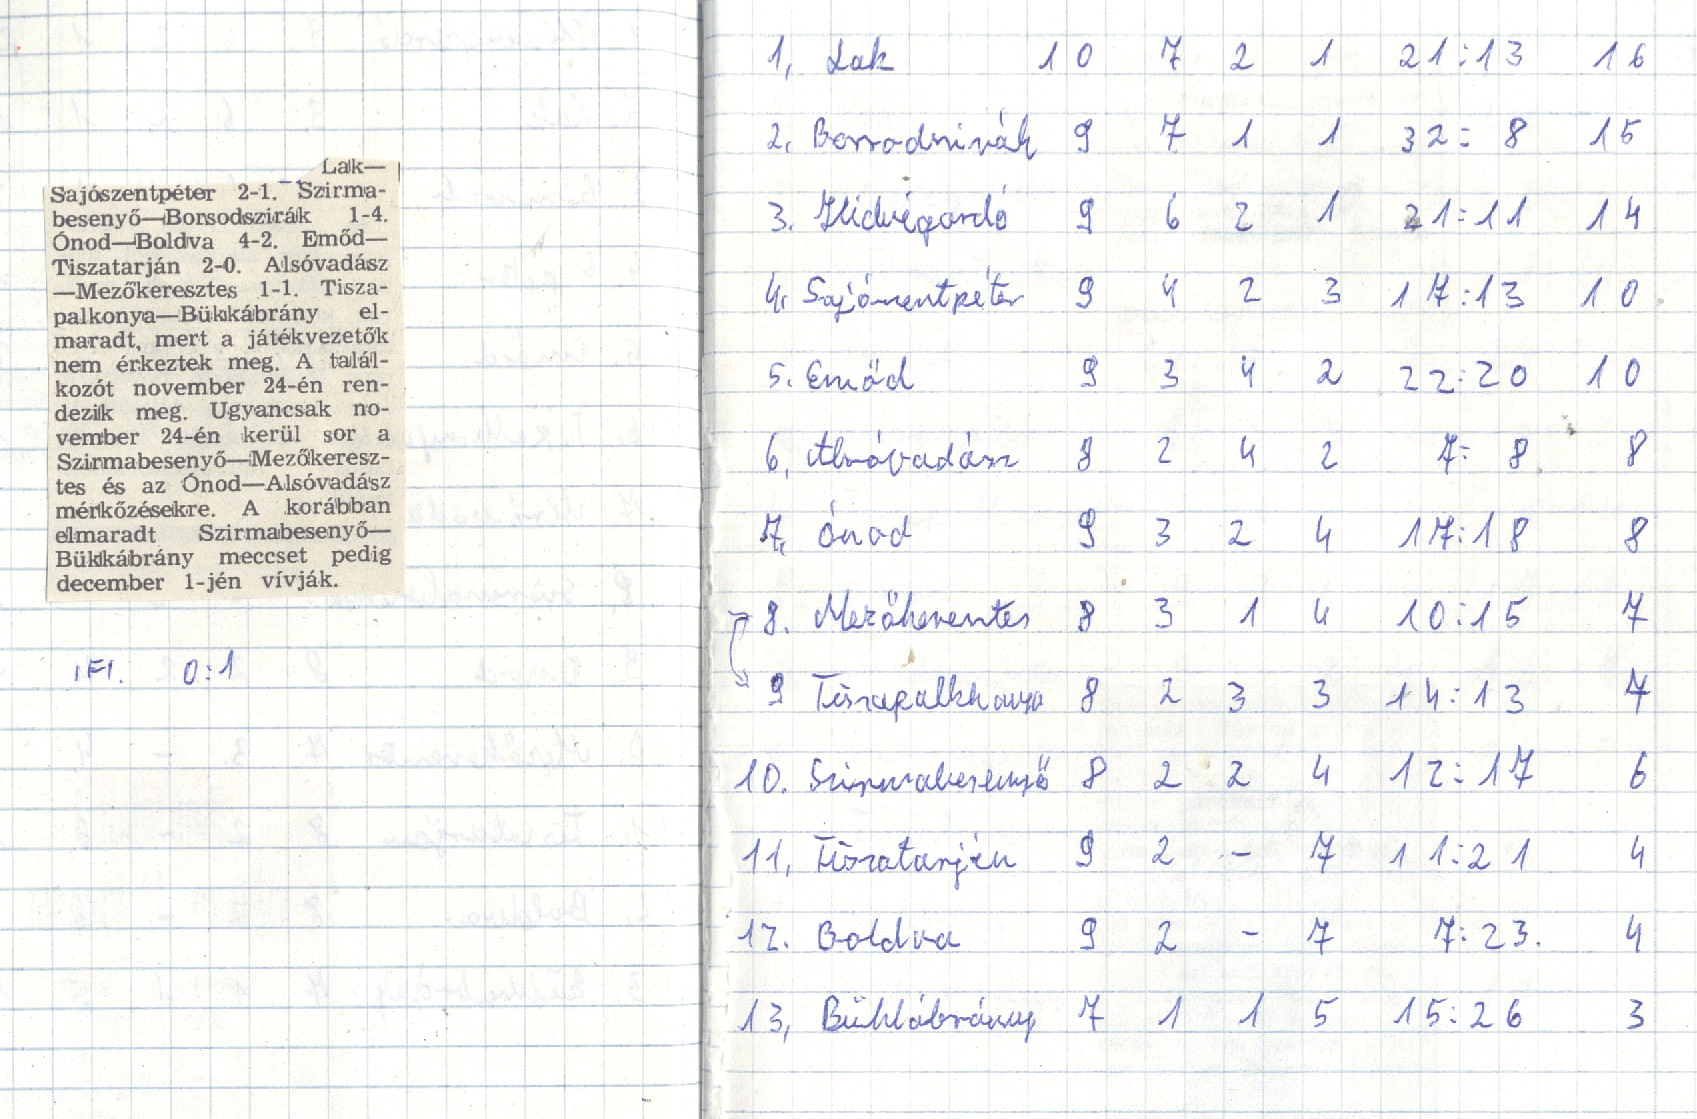 Lak—
Sajószentpéter 2-1. Szirma-
besenyő—Borsodszirák 1-4.
Ónod—Boldva 4-2. Emőd—
Tiszatarján 2-0. Alsóvadász
—Mezőkeresztes 1-1. Tisza-
palkonya—Bükkábrány el-
maradt, mert a játékvezetők
nem érkeztek meg. A talál-
kozót november 24-én ren-
dezik meg. Ugyancsak no-
vember 24-én kerül sor a
Szirmabesenyő—Mezőkeresz-
tes és az Ónod—Alsóvadász
mérkőzésekre. A korábban
elmaradt Szirmabesenyő—
Bükkábrány meccset pedig
december 1-jén vívják.
IFI. 0:1
1, Lak 10 7 2 1 21:13 16
2, Borsodszirák 9 7 1 1 32:8 15
3. Hidvégardó 9 6 2 1 21:11 14
4, Sajószentpéter 9 4 2 3 17:13 10
5. Emőd 9 3 4 2 22:20 10
6, Alsóvadász 8 2 4 2 7:8 8
7, Ónod 9 3 2 4 17:18 8
8. Mezőkeresztes 8 3 1 4 10:15 7
9 Tiszapalkonya 8 2 3 3 14:13 7
10. Szirmabesenyő 8 2 2 4 12:17 6
11, Tiszatarján 9 2 - 7 11:21 4
12. Boldva 9 2 - 7 7:23. 4
13, Bükkábrány 7 1 1 5 15:26 3